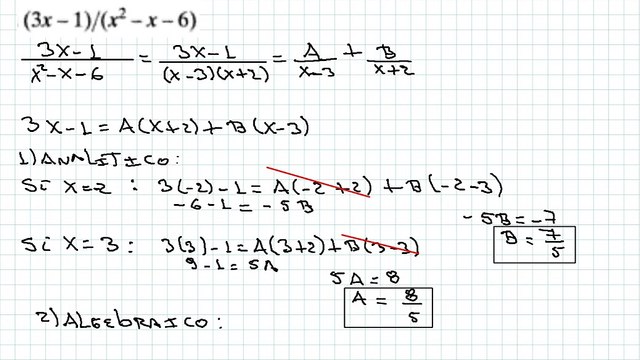 (3x − 1)/(x² − x − 6)
3x-1/x²-x-6 = 3x-1/(x-3)(x+2) = A/x-3 + B/x+2
3x-1 = A(x+2)+B(x-3)
1) ANALITICO:
Si x=2 : 3(-2)-1 = A(-2+2) + B(-2-3)
-6-1 = -5B
-5B = -7
B = 7/5
Si x=3 : 3(3)-1 = A(3+2)+B(3-3)
9-1 = 5A
5A = 8
A = 8/5
2) ALGEBRAICO: